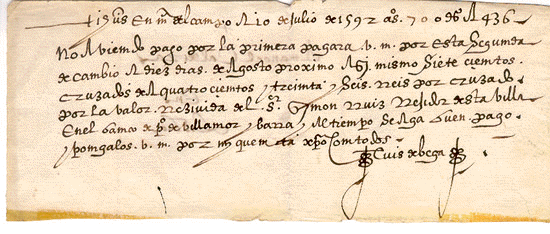 + ihus En mª del campo A 10 de Julio de 1592 aºs. 700 dºs A 436
No Aviendo pago por la primera pagara v. m. por Esta Segunda
de cambio A diez dias. de Agosto proximo A Si mismo Siete cientos.
cruzados de A quatrocientos y treinta y Seis Reis por cruzado
por la valor. Rezivida del sºr. Symon Ruiz Residor de sta villa
En el banco de pº de villamor y barra y Al tiempo de Aga buen. pago
y pongalos. v. m. por my quenta xpo Con todos
Luis de bega